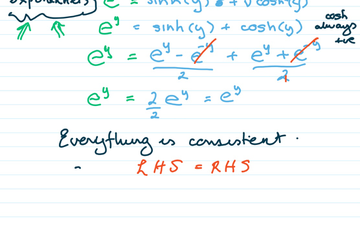 exponentials e^y = sinh(y) + √cosh²(y)
e^y = sinh(y) + cosh(y) cosh always +ve
e^y = (e^y - e^-y)/2 + (e^y + e^-y)/2
e^y = 2/2 e^y = e^y
Everything is consistent.
LHS = RHS